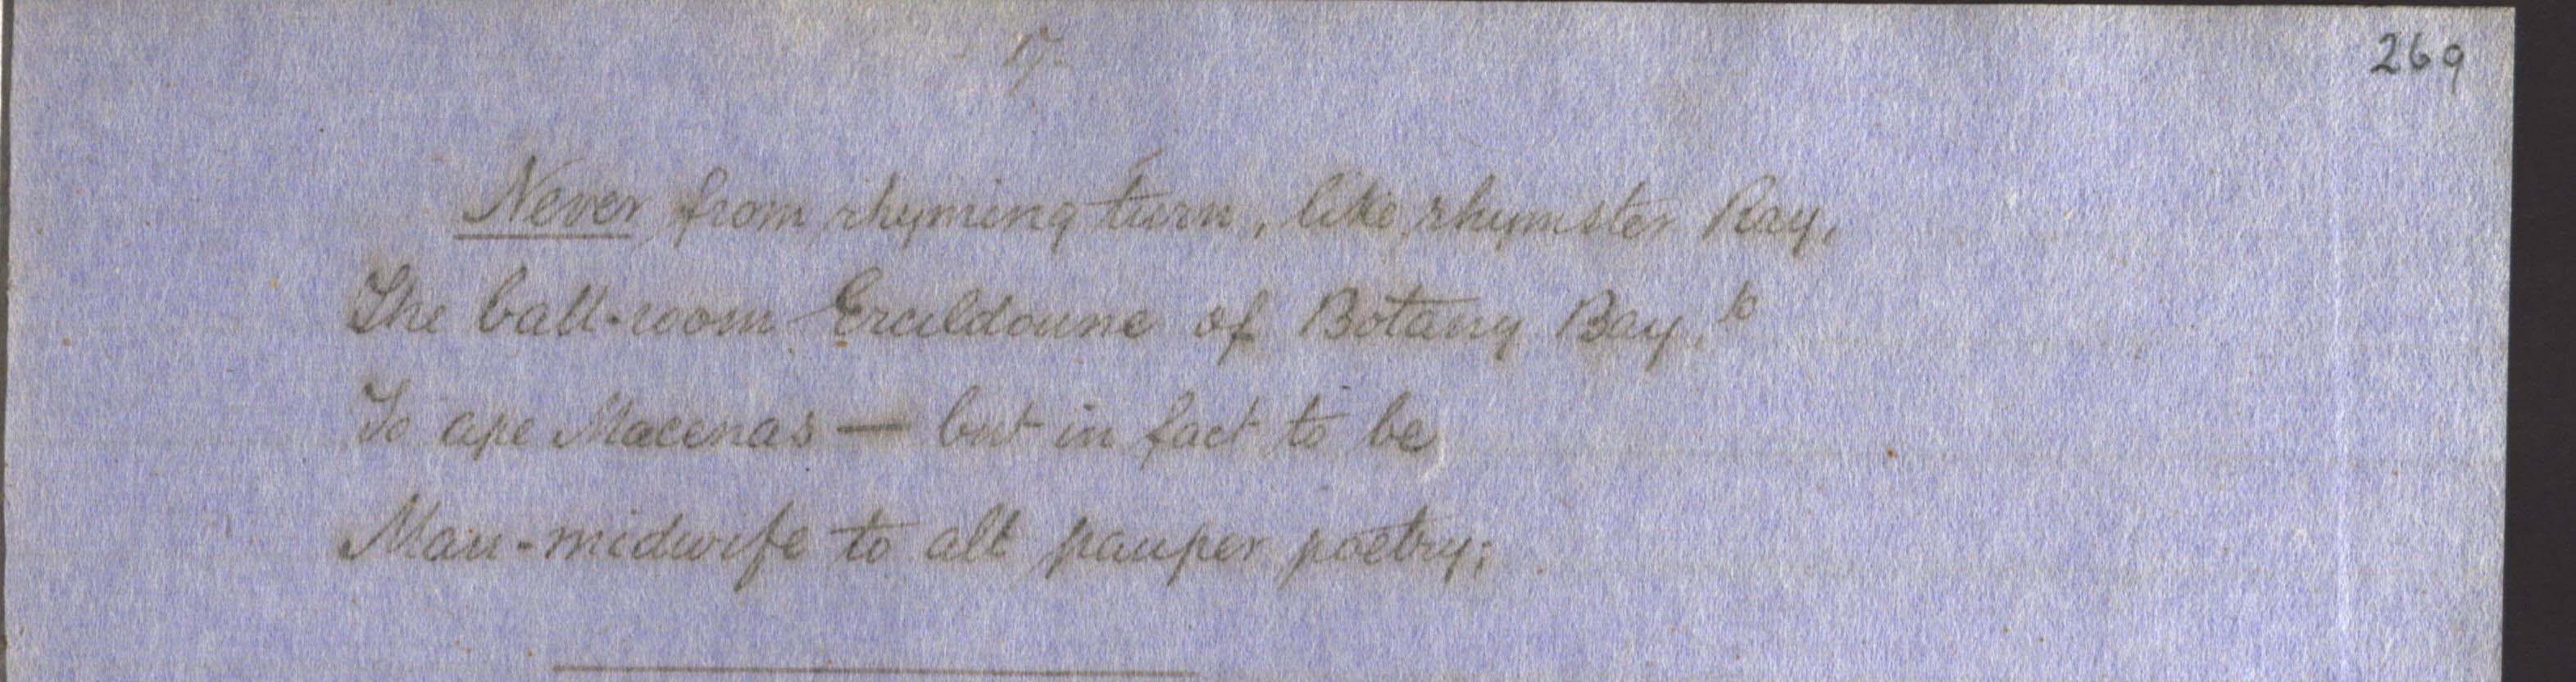 17
269
Never from rhyming turn, like rhymster Ray,
The ball-room Ercildoune of Botany Bay, k
To ape Mæcenas — but in fact to be
Man-midwife to all pauper poetry;